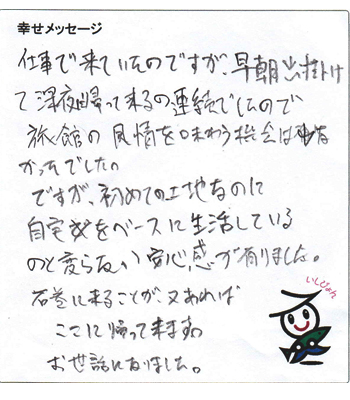 幸せメッセージ
仕事で来ていたのですが、早朝出掛け
て深夜帰って来るの連続でしたので
旅館の風情を味わう機会はな
かったでした。
ですが、初めての土地なのに
自宅をベースに生活している
のと変らない安心感が有りました。
石巻に来ることが、又あれば
ここに帰って来ますね
お世話になりました。
いしぴょん